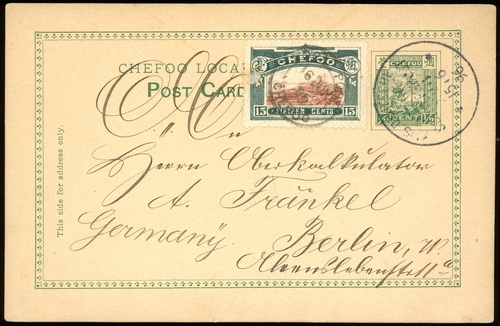 CHEFOO LOCAL
POST CARD
CHEFOO
15 FIFTEEN CENTS 15
CHEFOO
½ CENT ½
96
An
Herrn Oberkalkulator
A. Fränkel
Germany. Berlin, W.
Alvenslebenstr. 11a
This side for address only.